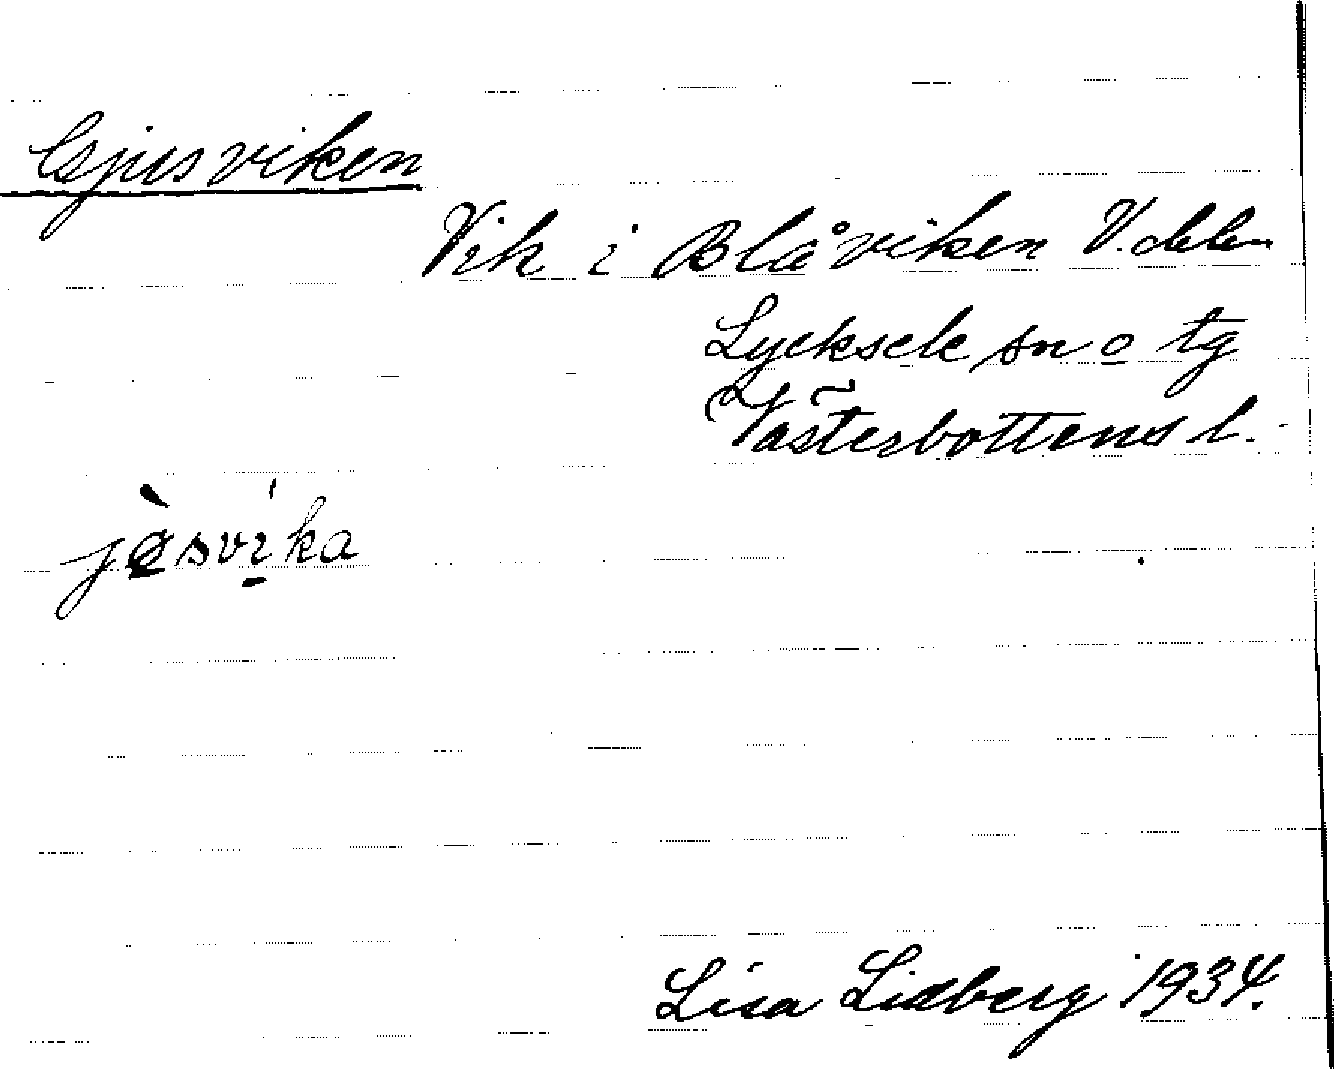 Gjusviken
Vik i Blåviken V. delen
Lycksele sn o tg
Västerbottens l.
jɵ̀svi̠ka
Lisa Lidberg 1934.